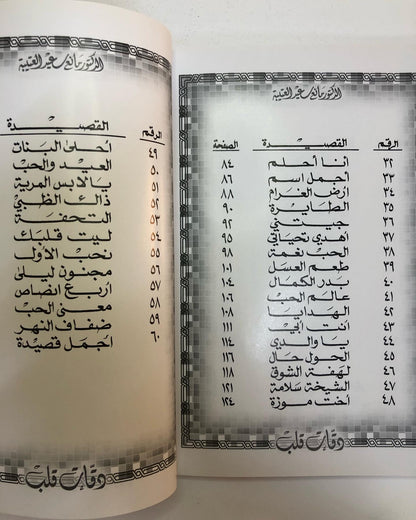 الدكتور مانع سعيد العتيبة
الرقم القصيدة الصفحة
٣٢ أنا أحلم ٨٤
٣٣ أجمل اسم ٨٦
٣٤ أرض الغرام ٨٨
٣٥ الطايرة ٩٠
٣٦ جيتيني ٩٢
٣٧ أهدي تحياتي ٩٥
٣٨ الحب نغمة ٩٨
٣٩ طعم العسل ١٠١
٤٠ بدر الكمال ١٠٤
٤١ عالم الحب ١٠٦
٤٢ الهدايا ١٠٨
٤٣ أنت الجي ١١١
٤٤ يا والدي ١١٤
٤٥ الحول حال ١١٦
٤٦ لهفة الشوق ١١٨
٤٧ الشيخة سلامة ١٢١
٤٨ أخت موزة ١٢٤
دقات قلب
الدكتور مانع سعيد العتيبة
الرقم القصيدة
٤٩ أحلى البنات
٥٠ العيد والحب
٥١ يا لابس المرية
٥٢ ذاك الظبي
٥٣ التحفة
٥٤ ليت قلبك
٥٥ نحب الأول
٥٦ مجنون ليلى
٥٧ أربع انصاص
٥٨ معنى الحب
٥٩ ضفاف النهر
٦٠ أجمل قصيدة
دقات قلب